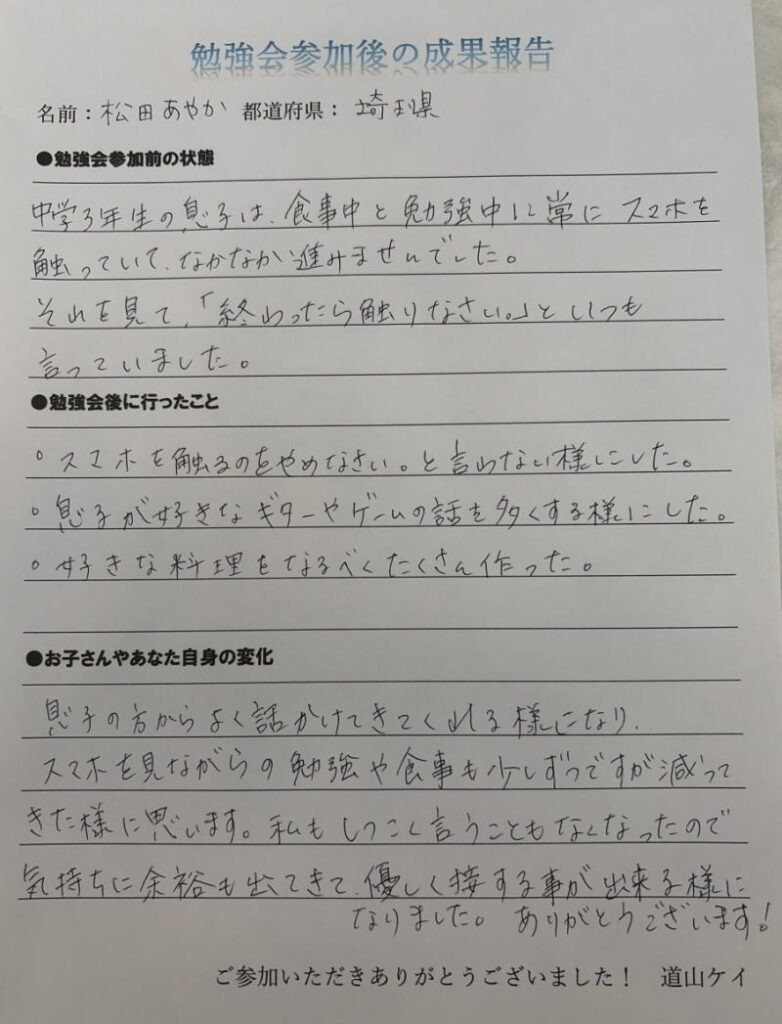 勉強会参加後の成果報告
名前：松田あやか 都道府県：埼玉県
●勉強会参加前の状態
中学3年生の息子は、食事中と勉強中に常にスマホを
触っていて、なかなか進みませんでした。
それを見て、「終わったら触りなさい。」といつも
言っていました。
●勉強会後に行ったこと
○スマホを触るのをやめなさい。と言わない様にした。
○息子が好きなギターやゲームの話を多くする様にした。
○好きな料理をなるべくたくさん作った。
●お子さんやあなた自身の変化
息子の方からよく話かけてきてくれる様になり、
スマホを見ながらの勉強や食事も少しずつですが減って
きた様に思います。私もしつこく言うこともなくなったので
気持ちに余裕も出てきて、優しく接する事が出来る様に
なりました。ありがとうございます！
ご参加いただきありがとうございました！ 道山ケイ